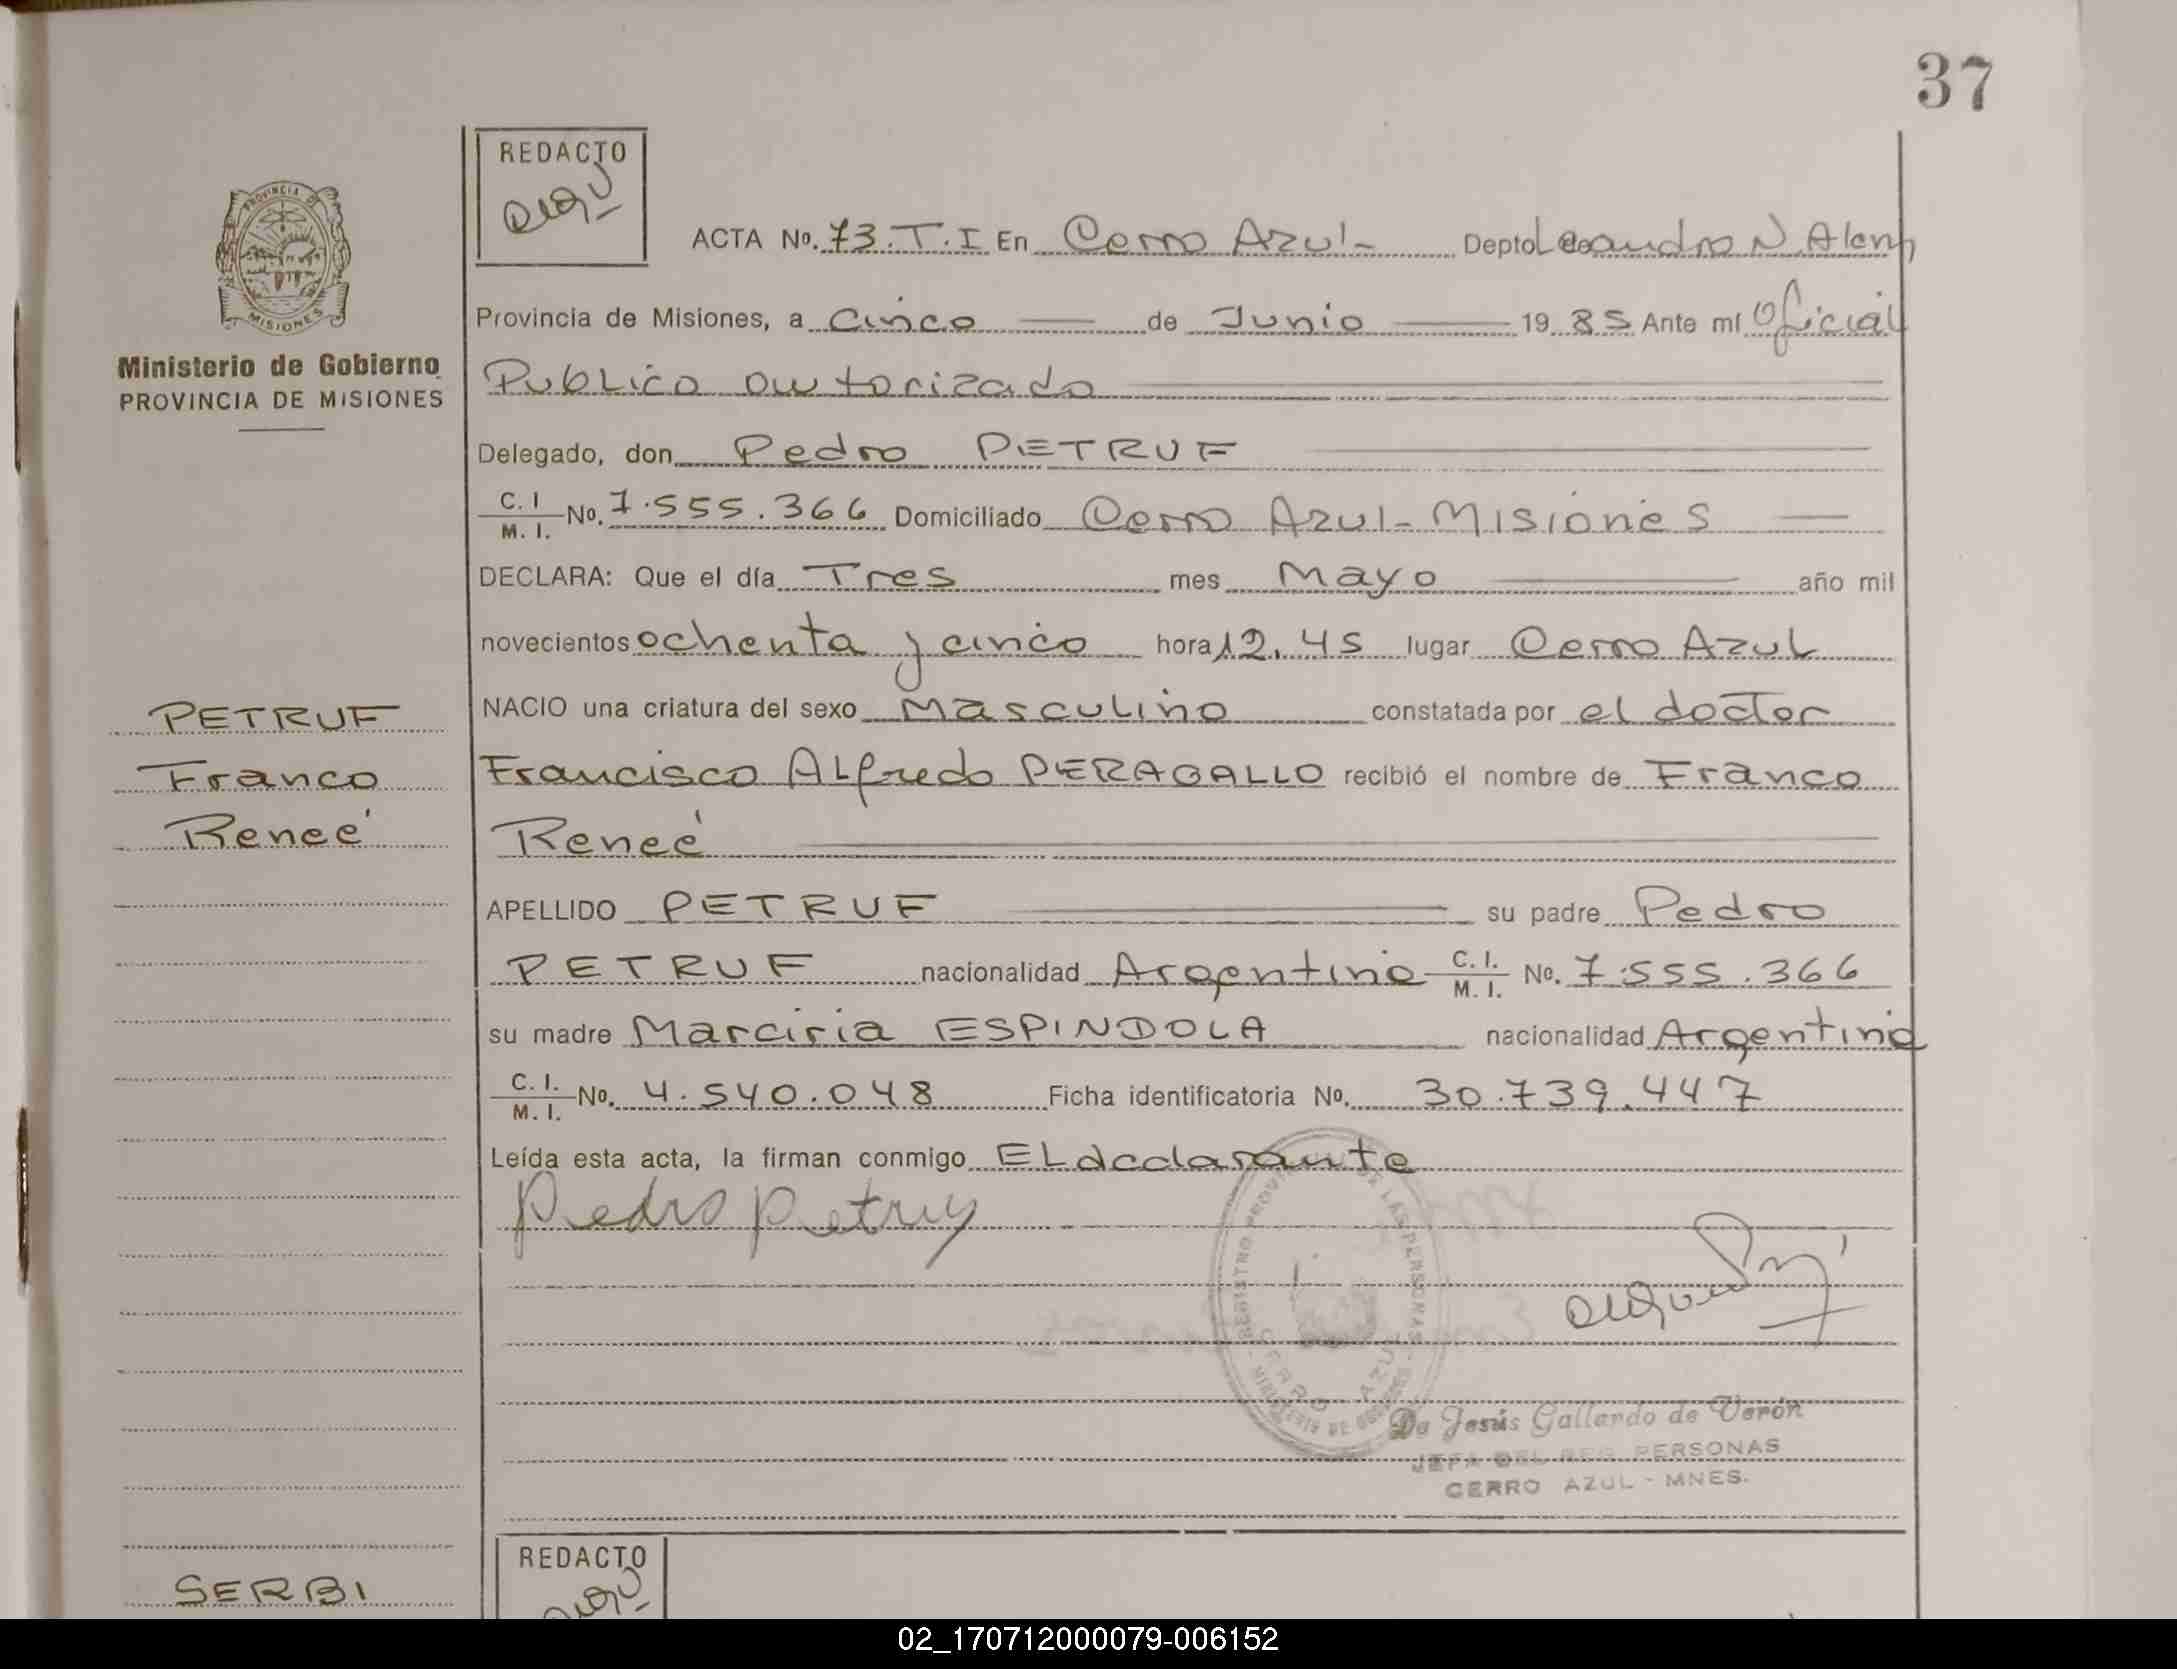 37
REDACTO
PROVINCIA DE
MISIONES
Ministerio de Gobierno
PROVINCIA DE MISIONES
ACTA No. 73. T. I En Cerro Azul- Depto Leandro N. Alem
Provincia de Misiones, a cinco de Junio 1985 Ante mí Oficial
Publico autorizado
Delegado, don Pedro PETRUF
C. I. M. I. No. 7.555.366 Domiciliado Cerro Azul- Misiones
DECLARA: Que el día Tres mes Mayo año mil
novecientos ochenta y cinco hora 12.45 lugar Cerro Azul
PETRUF
NACIO una criatura del sexo Masculino constatada por el doctor
Franco
Francisco Alfredo PERAGALLO recibió el nombre de Franco
Reneé
Reneé
APELLIDO PETRUF su padre Pedro
PETRUF nacionalidad Argentino C. I. M. I. No. 7.555.366
su madre Marciria ESPINDOLA nacionalidad Argentina
C. I. M. I. No. 4.540.048 Ficha identificatoria No. 30.739.447
Leída esta acta, la firman conmigo EL declarante
Pedro Petruf
REGISTRO PROVINCIAL DE LAS PERSONAS
CERRO AZUL
MINISTERIO DE GOBIERNO
Da Jesús Gallardo de Verón
JEFA DEL REG. PERSONAS
CERRO AZUL - MNES.
REDACTO
SERBI
02_170712000079-006152